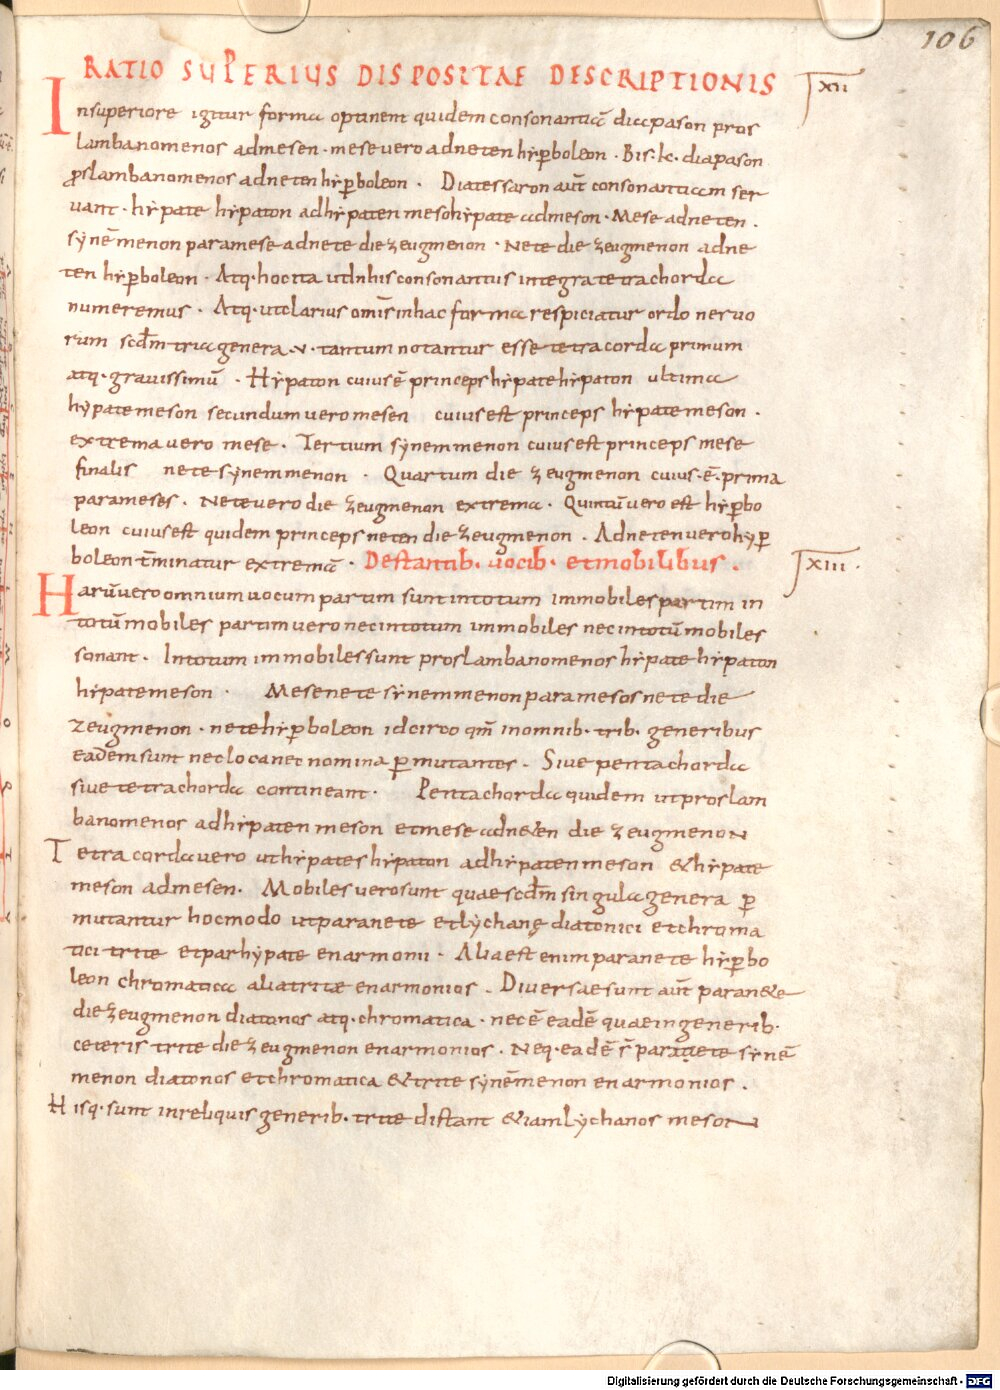 106
RATIO SUPERIUS DISPOSITAE DESCRIPTIONIS XII
Insuperiore igitur forma optinent quidem consonantiā diapason pros
lambanomenos admesen · mese vero adneten hyꝑboleon · Bis · diapason
ꝓslambanomenos adneten hyꝑboleon · Diatessaron aūt consonantiam ser
uant · hypate hypaton adhypaten meso hypate admeson · Mese adneten ·
synēmenon paramese adnete diezeugmenon · Nete diezeugmenon adne
ten hyꝑboleon · Atq· hoc ita ut In his consonantiis integra tetrachorda
numeremus · Atq· ut clarius om̄is in hac forma respiciatur ordo neruo
rum scdm̄ tria genera · v · tantum notantur esse tetracorda primum
atq· gravissimū · Hypaton cuius ē princeps hypate hypaton ultima
hypate meson secundum vero mesen cuius est princeps hypate meson ·
extrema vero mese · Tertium synemmenon cuius est princeps mese
finalis nete synemmenon · Quartum diezeugmenon cuius · ē · prima
parameses · Nete vero diezeugmenon extrema · Quintū vero est hyꝑbo
leon cuius est quidem princeps neten diezeugmenon · Adneten vero hyꝑ
boleon t̄minatur extremā · De stantib· uocib· et mobilibus · XIII ·
Harū vero omnium uocum partim sunt in totum immobiles partim in
totū mobiles partim vero nec in totum immobiles nec in totū mobiles
sonant · In totum immobiles sunt proslambanomenos hypate hypaton
hypate meson · Mese nete synemmenon paramesos nete die
zeugmenon · nete hyꝑboleon idcirco qm̄ in omnib· trib· generibus
eaedem sunt nec loca nec nomina ꝑmutantes · Sive pentachorda
sive tetrachorda contineant · Pentachorda quidem ut proslam
banomenos adhypaten meson et mese adneten diezeugmenon
Tetracorda vero ut hypates hypaton adhypaten meson & hypate
meson admesen · Mobiles vero sunt quae scdm̄ singula genera ꝑ
mutantur hoc modo ut paranete et lychanę diatonici et chroma
tici trite et parhypate enarmonii · Alia est enim paranete hyꝑbo
leon chromatica alia tritae enarmonios · Diversae sunt aūt paran&e
diezeugmenon diatonos atq· chromatica · nec ē eadē quae in generib·
ceteris trite diezeugmenon enarmonios · Neq· eadē paranete synē
menon diatonos et chromatica & trite synēmenon enarmonios ·
Hisq· sunt in reliquis generib· trite distant &iam lychanos meson
Digitalisierung gefördert durch die Deutsche Forschungsgemeinschaft - DFG